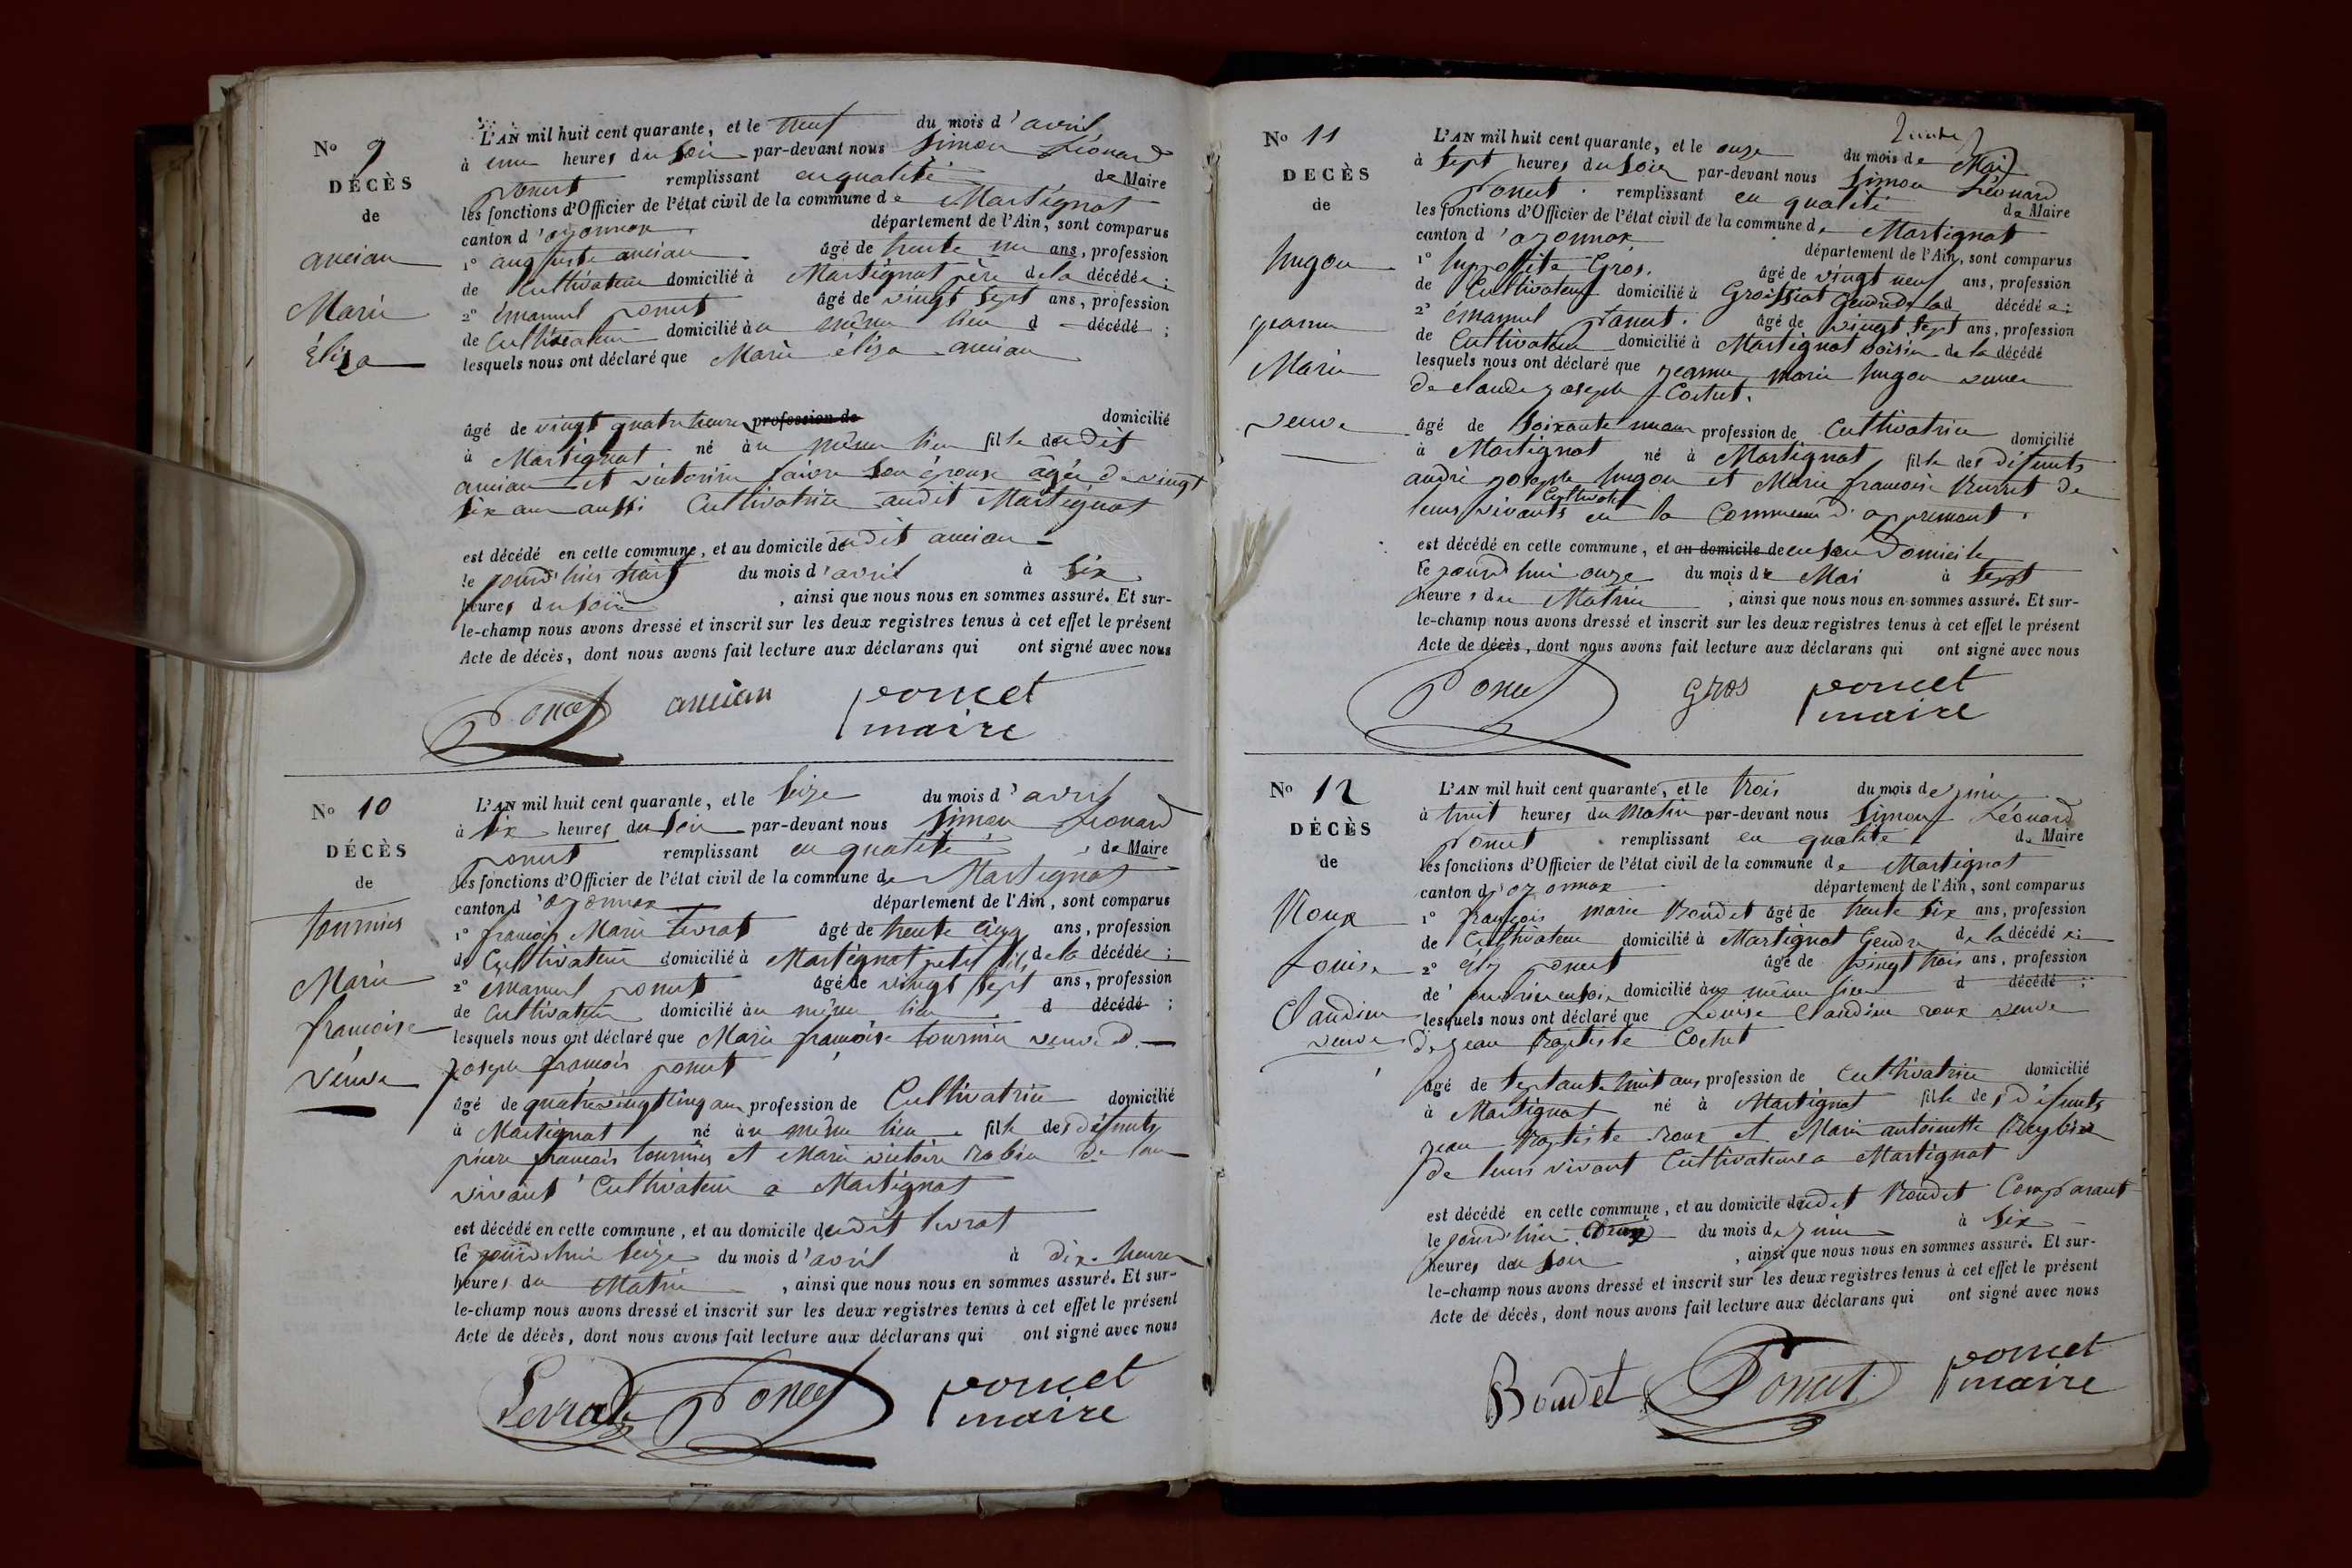 N° 9
DÉCÈS
de
ancian
Marie
éliza
L'AN mil huit cent quarante, et le neuf du mois d'avril
à une heures du soir par-devant nous Simon Léonard
poncet remplissant en qualité de Maire
les fonctions d'Officier de l'état civil de la commune de Martignat
canton d'oyonnax département de l'Ain, sont comparus
1° auguste ancian âgé de trente un ans, profession
de Cultivateur domicilié à Martignat père de la décédée;
2° émanuel poncet âgé de vingt sept ans, profession
de Cultivateur domicilié au même lieu d décédé;
lesquels nous ont déclaré que Marie éliza ancian
âgé de vingt quatre heures profession de domicilié
à Martignat né au même lieu fille dudit
ancian et victorine faivre son épouse âgée de vingt
six ans aussi Cultivatrice audit Martignat
est décédé en cette commune, et au domicile dudit ancian
le jourd'hier huit du mois d'avril à six
heures du soir, ainsi que nous nous en sommes assuré. Et sur-
le-champ nous avons dressé et inscrit sur les deux registres tenus à cet effet le présent
Acte de décès, dont nous avons fait lecture aux déclarans qui ont signé avec nous
Poncet ancian poncet
maire
N° 10
DÉCÈS
de
tournier
Marie
francoise
veuve
L'AN mil huit cent quarante, et le seize du mois d'avril
à six heures du soir par-devant nous Simon Léonard
poncet remplissant en qualité de Maire
les fonctions d'Officier de l'état civil de la commune de Martignat
canton d'oyonnax département de l'Ain, sont comparus
1° francois Marie Livrat âgé de trente cinq ans, profession
de Cultivateur domicilié à Martignat petit fils de la décédée;
2° émanuel poncet âgé de vingt sept ans, profession
de Cultivateur domicilié au même lieu d décédé;
lesquels nous ont déclaré que Marie françoise tournier veuve de
joseph françois poncet
âgé de quatre vingt cinq ans profession de Cultivatrice domicilié
à Martignat né au même lieu fille des défunts
pierre francois tournier et Marie victoire robin de leur
vivant Cultivateur a Martignat
est décédé en cette commune, et au domicile dudit livrat
le jourd'hui seize du mois d'avril à dix heures
heures du Matin, ainsi que nous nous en sommes assuré. Et sur-
le-champ nous avons dressé et inscrit sur les deux registres tenus à cet effet le présent
Acte de décès, dont nous avons fait lecture aux déclarans qui ont signé avec nous
Poncet poncet
maire
N° 11
DECÈS
de
hugon
jeanne
Marie
veuve
L'AN mil huit cent quarante, et le onze du mois de Mai
à sept heures du soir par-devant nous Simon Léonard
Poncet remplissant en qualité de Maire
les fonctions d'Officier de l'état civil de la commune de Martignat
canton d'oyonnax département de l'Ain, sont comparus
1° hyppolite Gros. âgé de vingt neuf ans, profession
de Cultivateur domicilié à Groissiat Gendre de la décédée;
2° émanuel Poncet. âgé de vingt sept ans, profession
de Cultivateur domicilié à Martignat voisin de la décédé
lesquels nous ont déclaré que jeanne marie hugon veuve
de claude joseph Cochet.
âgé de soixante ans profession de Cultivatrice domicilié
à Martignat né à Martignat fille des défunts
andré joseph hugon et Marie francoise de
leurs vivants Cultivateurs en la Commune d'apremont.
est décédé en cette commune, et au domicile de en son Domicile
le jourd'hui onze du mois de Mai à sept
heures du Matin, ainsi que nous nous en sommes assuré. Et sur-
le-champ nous avons dressé et inscrit sur les deux registres tenus à cet effet le présent
Acte de décès, dont nous avons fait lecture aux déclarans qui ont signé avec nous
Poncet Gros poncet
maire
N° 12
DÉCÈS
de
Roux
Louise
Claudine
veuve
L'AN mil huit cent quarante, et le trois du mois de juin
à huit heures du Matin par-devant nous Simon Léonard
Poncet remplissant en qualité de Maire
les fonctions d'Officier de l'état civil de la commune de Martignat
canton d'oyonnax département de l'Ain, sont comparus
1° françois marie Boudet âgé de trente six ans, profession
de Cultivateur domicilié à Martignat Gendre de la décédée;
2° poncet âgé de vingt trois ans, profession
de domicilié au même lieu d décédé;
lesquels nous ont déclaré que Louise Claudine roux veuve
de jean Baptiste Cochet
âgé de septante huit ans profession de Cultivatrice domicilié
à Martignat né à Martignat fille des défunts
jean Baptiste roux et Marie antoinette
de leurs vivant Cultivateurs a Martignat
est décédé en cette commune, et au domicile dudit Boudet Comparant
le jourd'hier deux du mois de juin à six
heures du soir, ainsi que nous nous en sommes assuré. Et sur-
le-champ nous avons dressé et inscrit sur les deux registres tenus à cet effet le présent
Acte de décès, dont nous avons fait lecture aux déclarans qui ont signé avec nous
Boudet Poncet poncet
maire